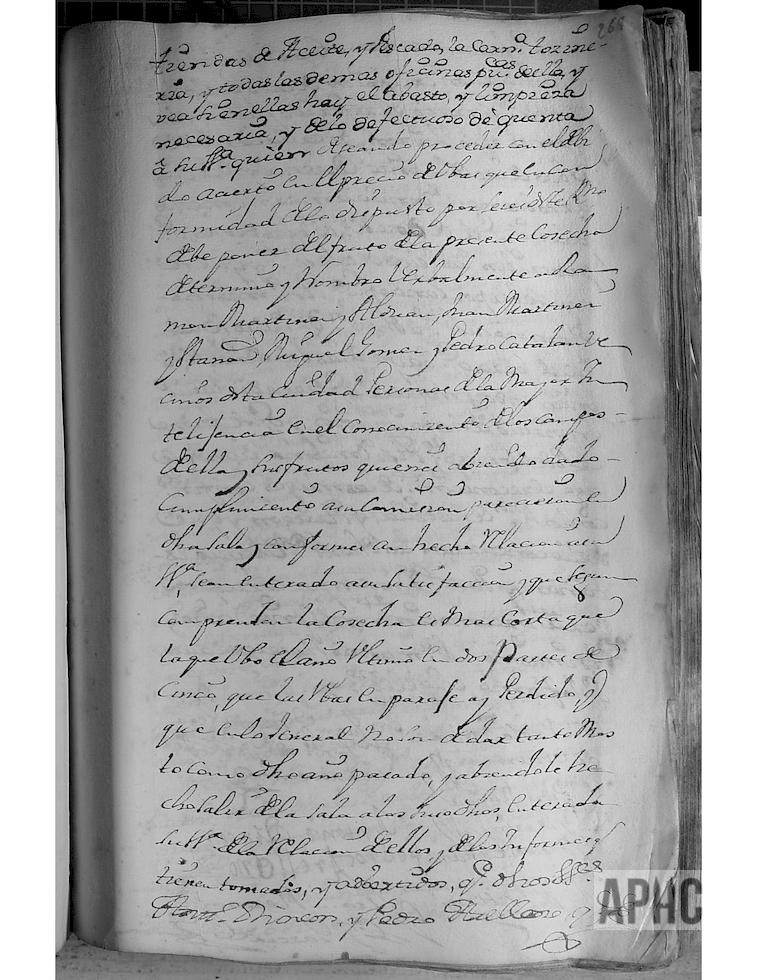 268
tiendas de Aceite, y Pescado, la Carn.ª tozine-
ria, y todas las demas oficinas pu.cas della, y
vea si en ellas hay el abasto, y limpieza
necesaria, y delo defectuoso dè quenta
à su S.ª quien deseando proceder con el debi
do acierto en el precio de Vbas que en con
formidad de lo dispuesto por
debe poner del fruto de la presente Cosecha
determinò y Nombrò Verbalmente a Ra
mon Martinez y Adrian, Juan Martinez
y Miguel Gomez y Pedro Catalan ve
cinos desta ciudad Personas de la Mayor In
telijencia en el Conocimiento de los campos
della y sus frutos quienes abiendo dado
Cumplimiento a su Comision parecieron en
dha sala y conformes an hecho Relacion a su
S.ª sean enterado a su satisfaccion y que segun
comprenden la Cosecha es Mas Corta que
la que Vbo el año Vltimo en dos Partes de
Cinco, que las Vbas en paraje ay Perdido, y
que en lo Jeneral no son de dar tanto Mos
to como dho año pasado, y abiendole he
cho salir de la sala a los suso dhos, enterada
su S.ª de la Relacion dellos y de los Informes q
tienen tomados, y adbertidos, q.e dhos SS.es
y Pedro
APHC